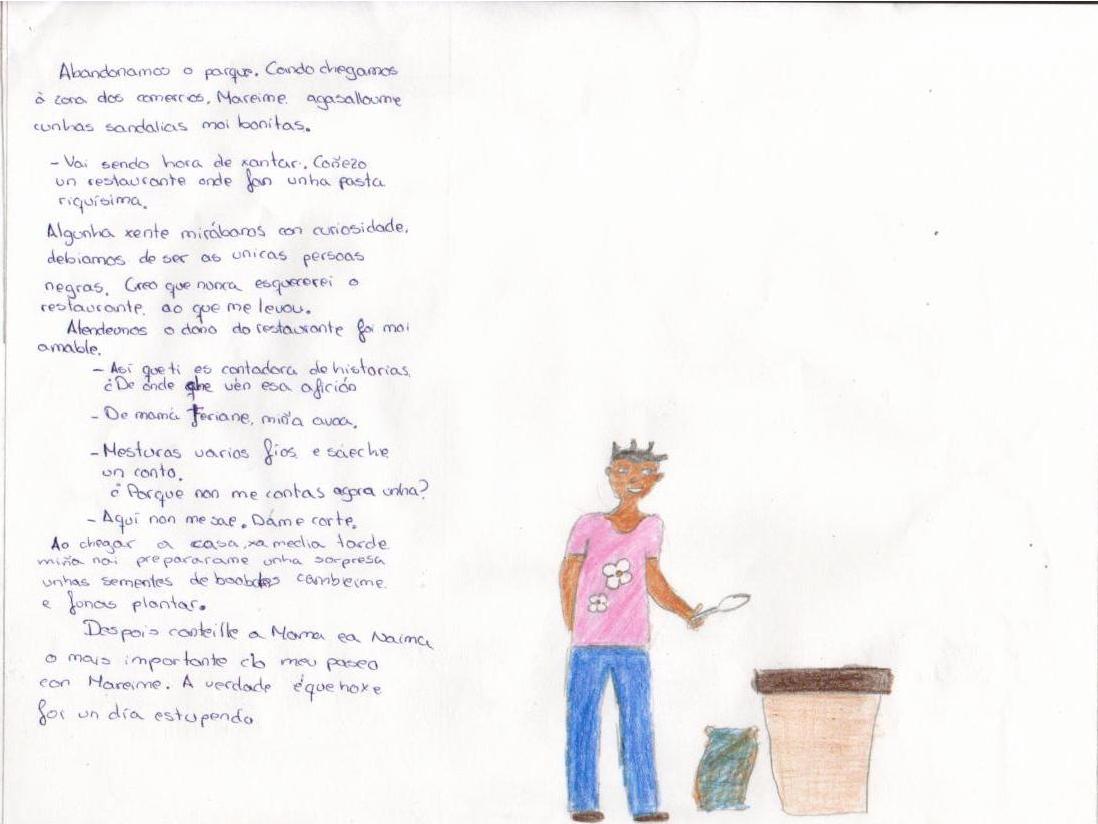 Abandonamos o parque. Cando chegamos
á zona dos comercios, Mareime agasalloume
cunhas sandalias moi bonitas.
- Vai sendo hora de xantar. Coñezo
un restaurante onde fan unha pasta
riquísima.
Algunha xente mirábanos con curiosidade,
debiamos de ser as unicas persoas
negras. Creo que nunca esquecerei o
restaurante ao que me levou.
Atendeunos o dono do restaurante foi moi
amable.
- Así que ti es contadora de historias,
¿De onde che vén esa afición
- De mamá Feriane, miña avoa.
- Mesturas varios fíos e sáeche
un conto.
¿Porque non me contas agora unha?
- Aquí non me sae. Dáme corte.
Ao chegar a casa, xa media tarde
miña nai prepararame unha sorpresa
unhas sementes de baobabs cambeime
e fonas plantar.
Despois conteille a Mama e a Naima
o mais importante do meu paseo
con Mareime. A verdade é que hoxe
foi un día estupendo